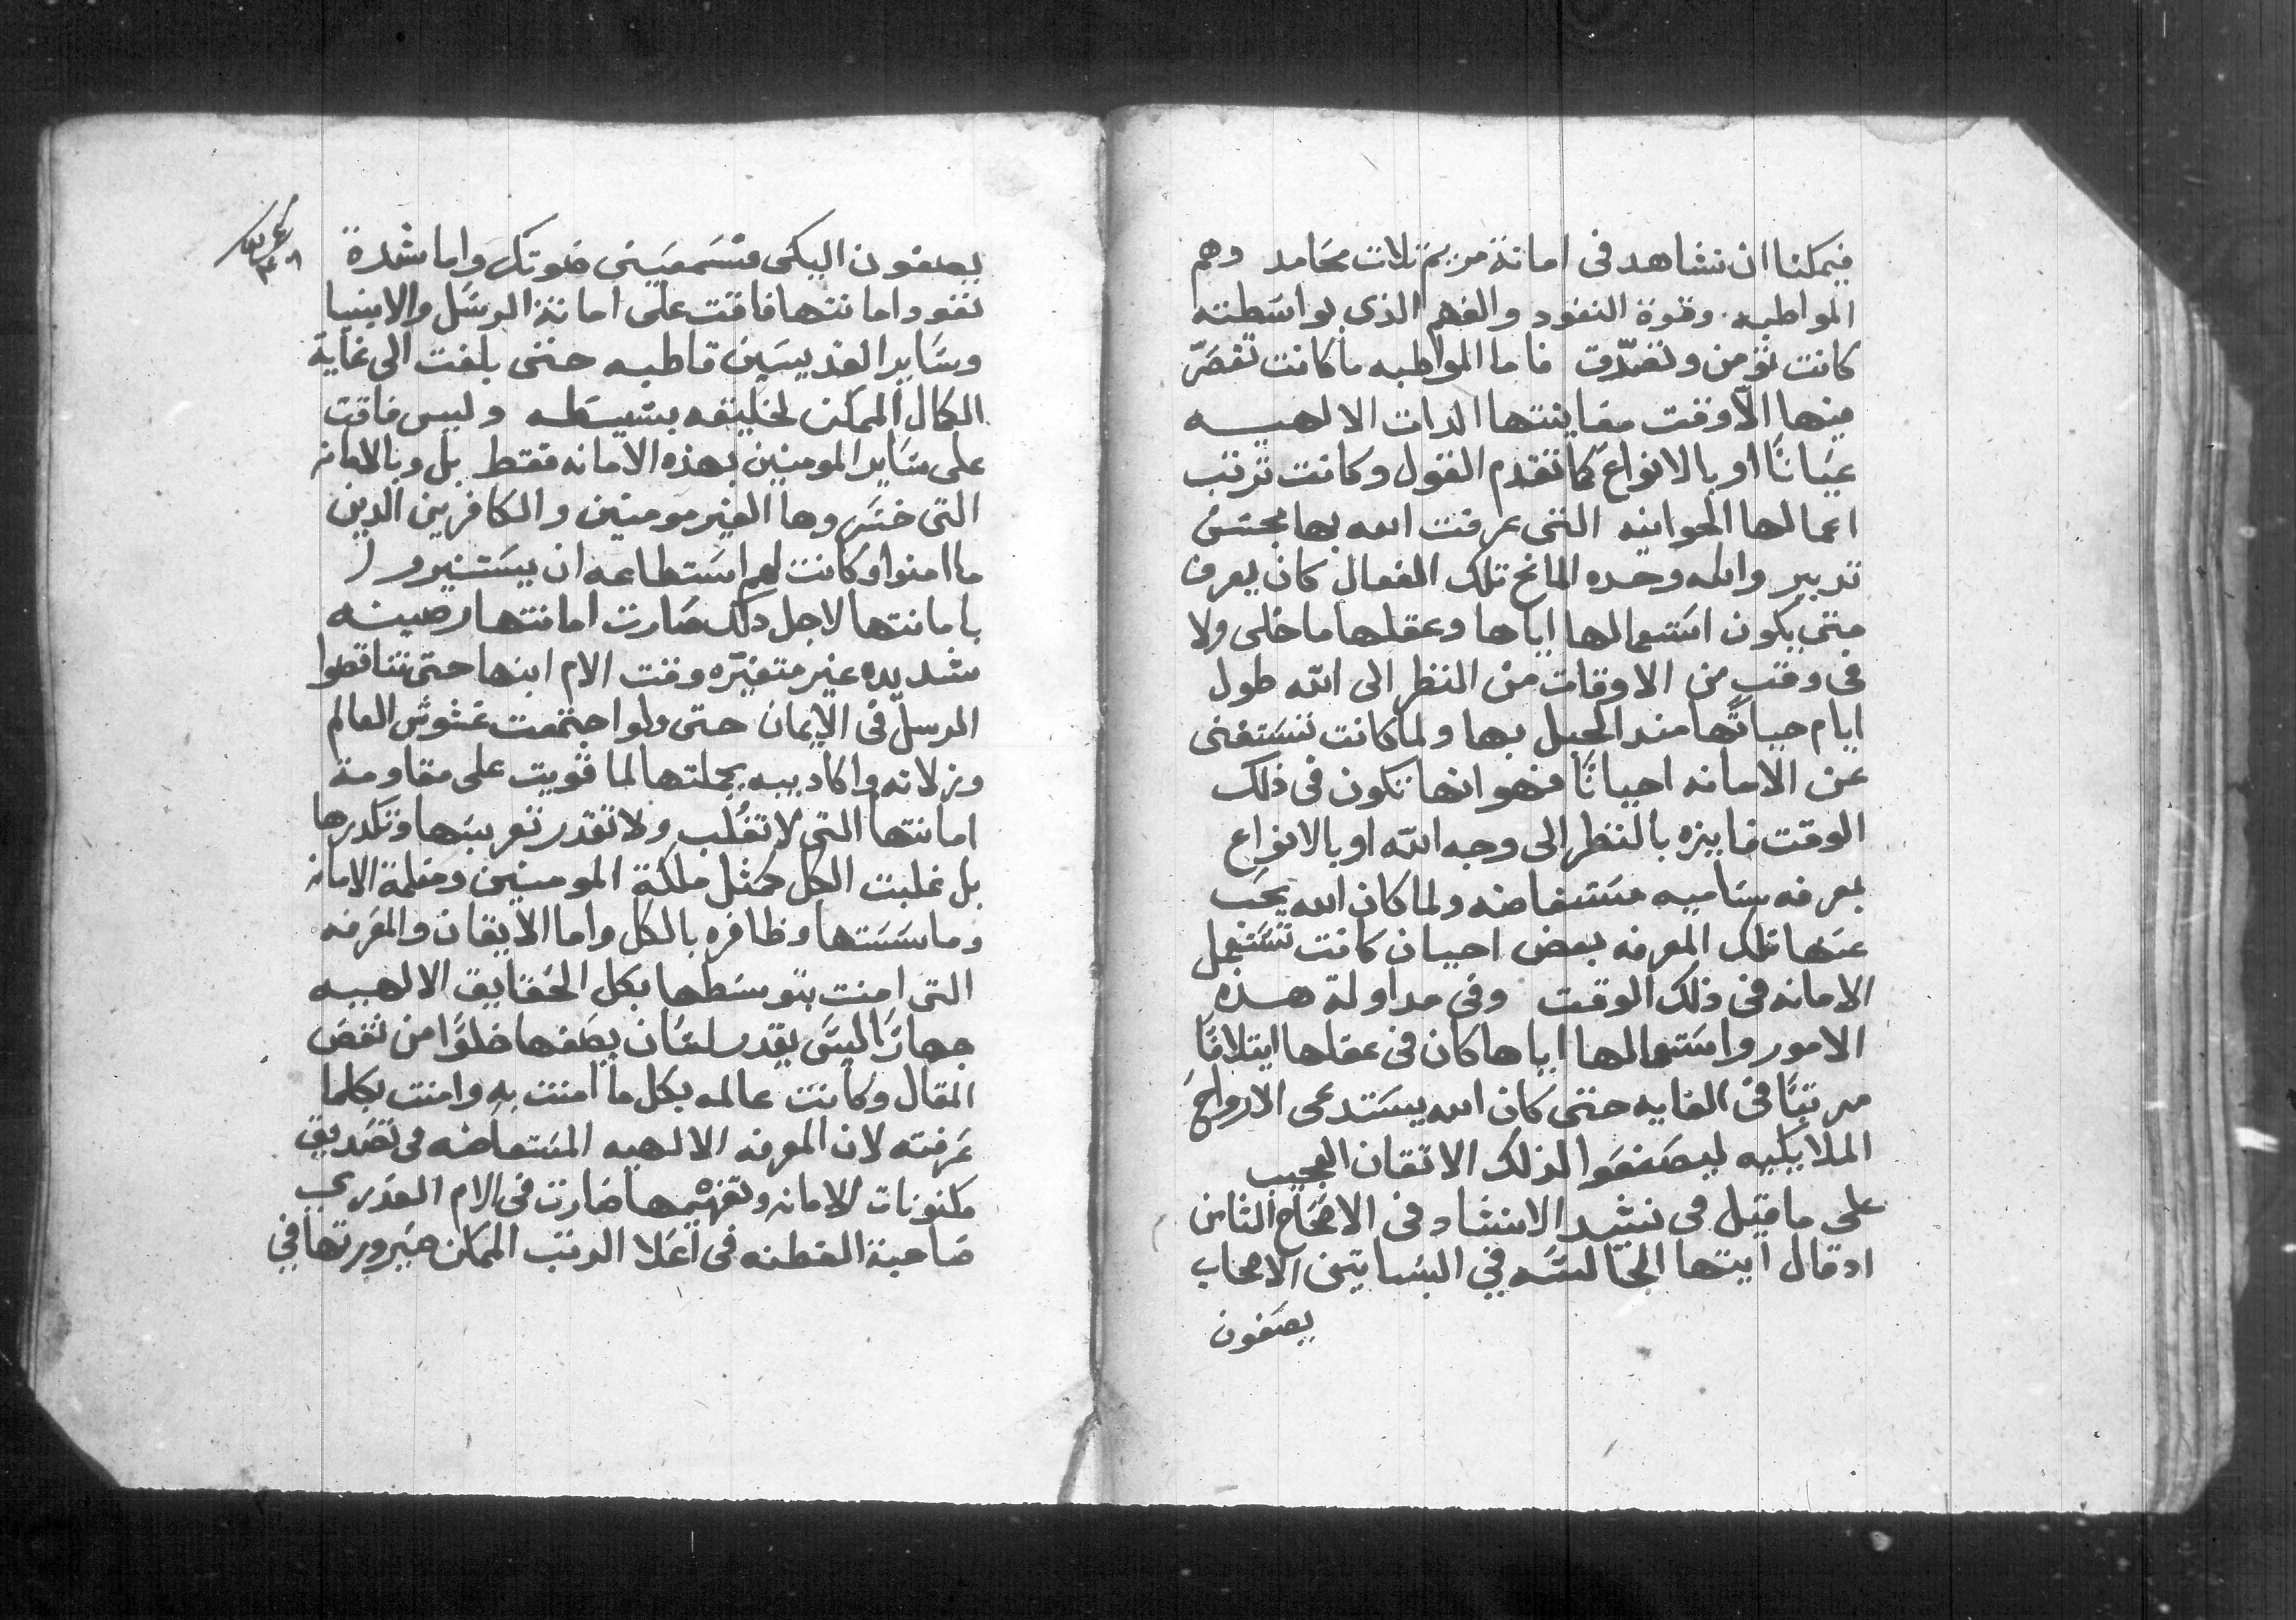 فيمكننا ان نشاهد فى امانة مريم تلات محامد وهم
المواطبه وقوة النفود والفهم الذى بواسطته
كانت تؤمن وتصدّق فاما المواطبه ماكانت تقصرّ
منها الّا وقت معاينتها الدات الالهيه
عيانًا او بالانواع كما تقدم القول وكانت ترتب
اعمالها الجوانيه التى عرفت الله بها بحسن
تدبير والله وحده المانح تلك الفعال كان يعرف
متى يكون استعمالها اياها وعقلها ماخلى ولا
فى وقتٍ من الاوقات من النظر الى الله طول
ايام حياتها مند الحبل بها ولما كانت تستغنى
عن الامانه احيانًا فهو انها تكون فى ذلك
الوقت فايزه بالنظر الى وجه الله او بالانواع
بمعرفه ساميه مستفاضه ولما كان الله يحجب
عنها تلك المعرفه بعض احيان كانت تستعمل
الامانه فى ذلك الوقت وفى مداولة هذه
الامور واستعمالها اياها كان فى عقلها ايتلافًا
مرتبًا فى الغايه حتى كان الله يستدعى الارواح
الملايكيه ليصغوا لذلك الاتقان العجيب
على ما قيل فى نشيد الانشاد فى الاصحاح الثامن
ادقال ايتها الجالسه في البساتين الاصحاب
يصغون
يصغون اليكى فتسمعينى صوتك واما شدة
نفود امانتها فاقت على امانة الرسل والانبيا
وسايرالقديسين قاطبه حتى بلغت الى غاية
الكمال الممكن لخليقه بسيطه وليس فاقت
على ساير المومنين بهذه الامانه فقط بل وبالامانه
التى خسروها الغير مومنين والكافرين الدين
ما امنوا وكانت لهم استطاعه ان يستنيروا
بامانتها لاجل دلك صارت امانتها رصينه
شديده غير متغيّره وقت الام ابنها حتى تناقصوا
الرسل فى الايمان حتى ولو اجتمعت غشوش العالم
وزلاته واكاديبه بجملتها لما قويت على مقاومة
امانتها التى لا تغُلب ولا تقدر تعربسها وتكدرها
بل غلبت الكل كمثل ملكة المومنين ومعلمة الامانه
وماسستها وظافره بالكل واما الايقان والمعرفه
التى امنت بتوسطها بكل الحقايق الالهيه
جهارًا ليس يقدر لسان يصفها خلوًا من نقص
المقال وكانت عالمه بكل ما امنت به وامنت بكلما
عرفته لان المعرفه الالهيه المستفاضه فى تصديق
مكنونات الامانه وتفهيمها صارت فى الام العدرى
صاحبة الفطنه فى اعلا الرتب الممكن صيرورتها في